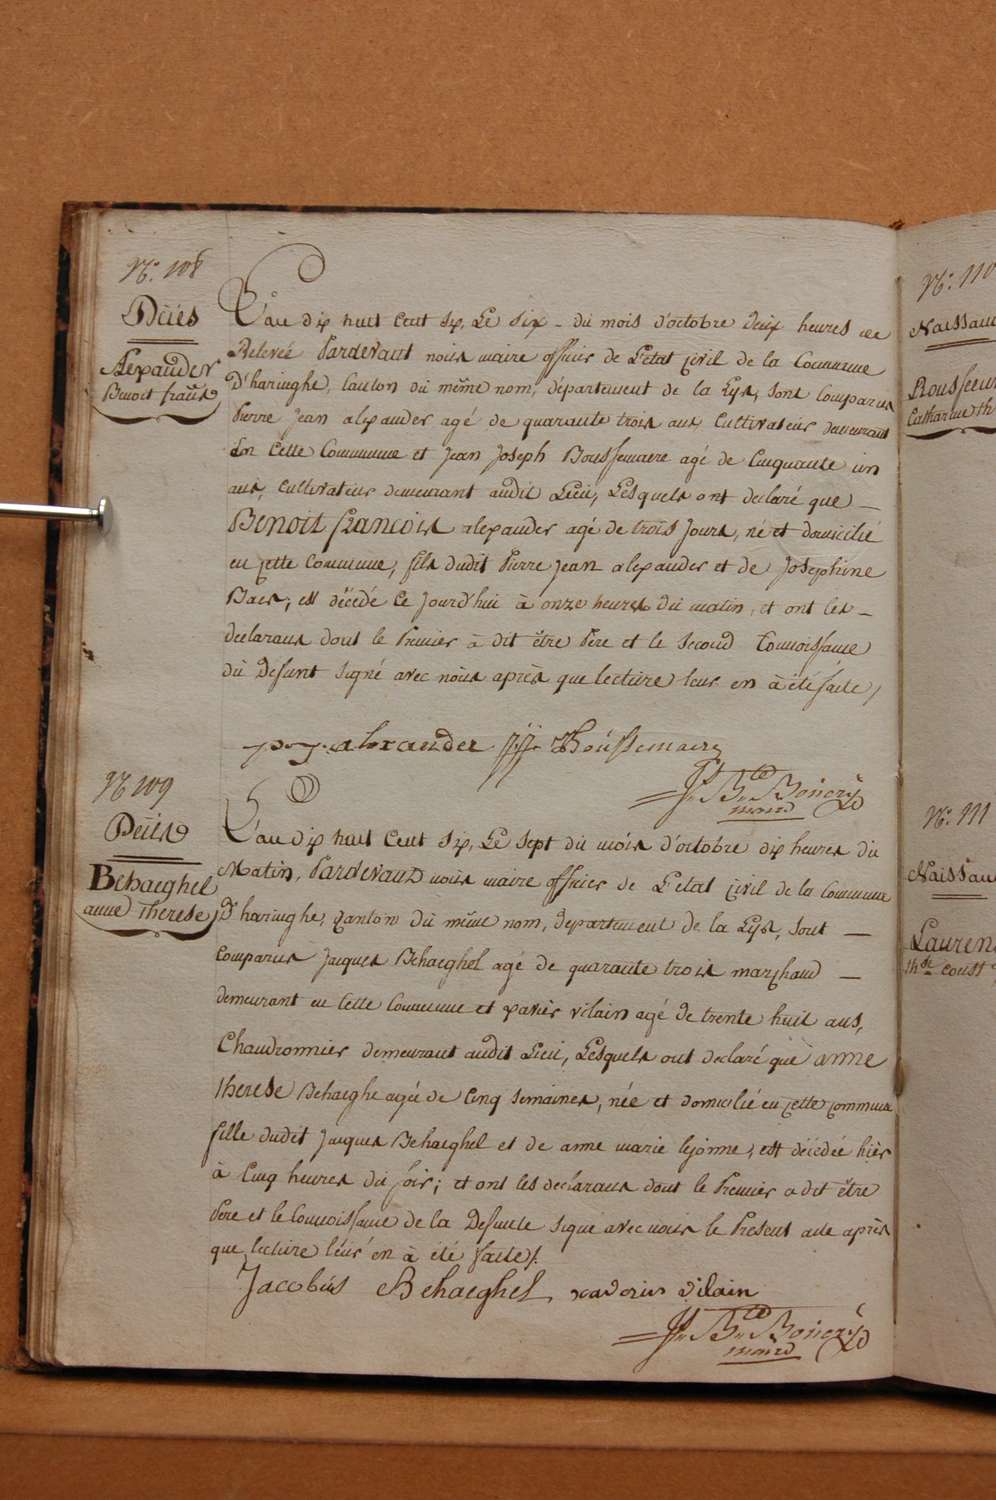 N.° 108
Décés
Alexander
Benoit fran.s
L'an dix huit Cent six, Le six - du mois d'octobre deux heures de
Relevée Pardevant nous maire officier de L'etat civil de la Commune
D'haringhe, Canton du même nom, département de la Lys, sont Comparus
Pierre Jean alexander agé de quarante trois ans Cultivateur demeurant
En Cette Commune et Jean Joseph Boussemaere agé de Cinquante un
ans, cultivateur demeurant audit Lieu, Lesquels ont declaré que —
Benoit francois alexander agé de trois Jours, né et domicilié
en cette commune, fils dudit Pierre Jean alexander et de Josephine
Baes, est décédé Ce Jourd'hui à onze heures du matin, et ont les —
declarans dont le Premier à dit être Père et le second Connoissance
du Defunt signé avec nous après que lecture leur en à été faite /
p. j. alexander j j Boussemaere
J. B.te Bonczyd
maire
N.° 109
Décés
Behaeghel
anne Therese
L'an dix huit Cent six, Le sept du mois d'octobre dix heures du
Matin, Pardevant nous maire officier de L'etat civil de la Commune
D'haringhe, canton du même nom, departement de la Lys, sont —
Comparus Jacques Behaeghel agé de quarante trois marchand —
demeurant en Cette Commune et xavier vilain agé de trente huit ans,
Chaudronnier demeurant audit Lieu, Lesquels ont declaré que anne
therese Behaeghe agée de Cinq semaines, née et domicilié en cette commune
fille dudit Jacques Behaeghel et de anne marie lejonne, est décédée hièr
à Cinq heures du soir; et ont les declarans dont le Premier a dit être
Père et le Connoissance de la Defunte signé avec nous le Present acte après
que lecture leur en à été faite /.
Jacobus Behaeghel xaverius vilain
J. B.te Bonczyd
maire
N.° 110
Naissan
Catharine th
N.° 111
Naissan
Lauren
th.se const